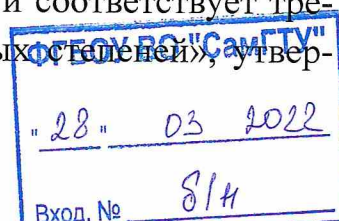 и соответствует тре-
ых степеней», утвер-
ФГБОУ ВО "СамГТУ"
"28" 03 2022
Вход. № б/н